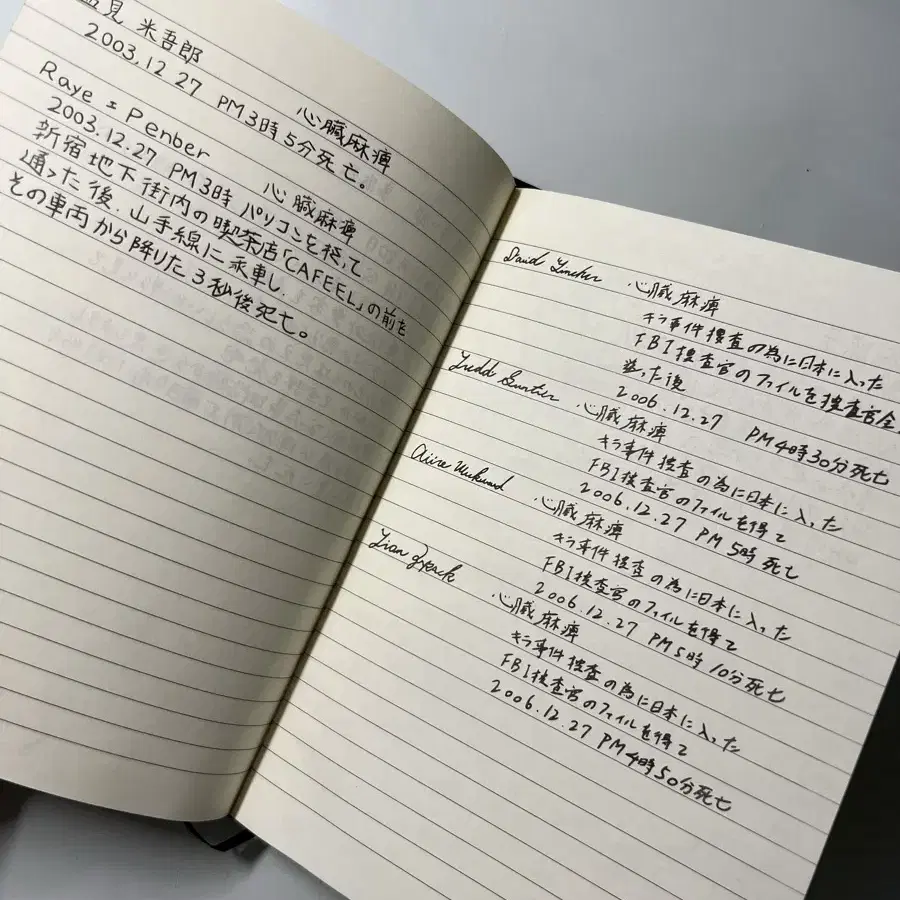 見 米吾郎 心臓麻痺
2003,12 27 PM3時5分死亡。
Raye = Penber 心臓麻痺
2003.12.27 PM3時 パソコンを って
新宿地下街内の喫茶店「CAFEEL」の前を
通った後、山手線に乗車し、
その車両から降りた3秒後死亡。
心臓麻痺
キラ事件捜査の為に日本に入った
FBI捜査官のファイルを捜査官全
った後
2006.12.27 PM4時30分死亡
心臓麻痺
キラ事件捜査の為に日本に入った
FBI捜査官のファイルを得て
2006.12.27 PM 5時 死亡
心臓麻痺
キラ事件捜査の為に日本に入った
FBI捜査官のファイルを得て
2006.12.27 PM5時10分死亡
心臓麻痺
キラ事件捜査の為に日本に入った
FBI捜査官のファイルを得て
2006.12.27 PM4時50分死亡